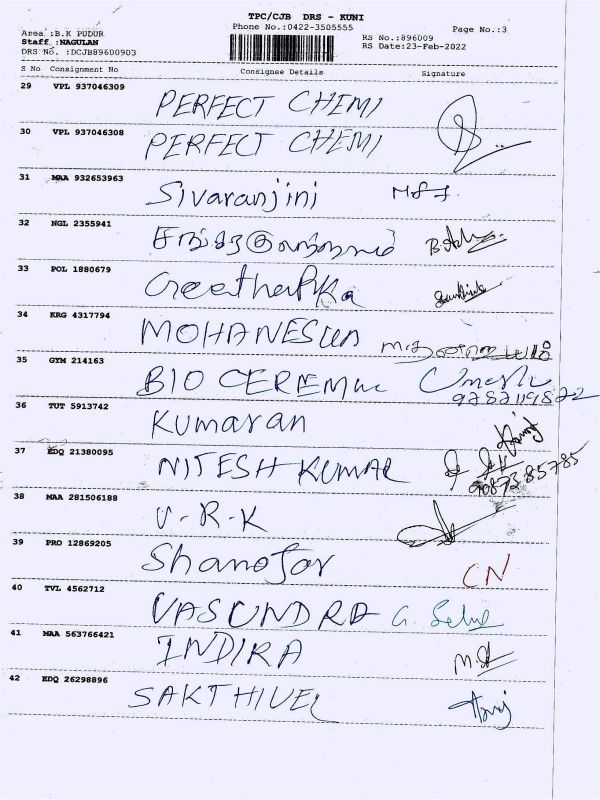 TPC/CJB DRS - KUNI
Area :B.K PUDUR
Phone No.:0422-3505555
Page No.:3
Staff :NAGULAN
RS No.:896009
DRS No. :DCJB89600903
RS Date:23-Feb-2022
S No Consignment No Consignee Details Signature
29 VPL 937046309 PERFECT CHEMI
30 VPL 937046308 PERFECT CHEMI
31 MAA 932653963 Sivaranjini
32 NGL 2355941
33 POL 1880679
34 KRG 4317794
35 GYM 214163 BIO
9787119872
36 TUT 5913742 Kumaran
37 EDQ 21380095 NITESH KUMAR
9087385785
38 MAA 281506188 V-R-K
39 PRO 12869205 Shanofar CN
40 TVL 4562712 VASUNDRA
41 MAA 563766421 INDIRA
42 EDQ 26298896 SAKTHIVEL